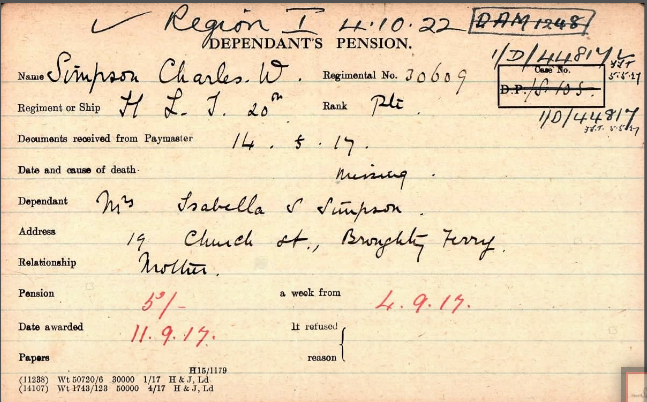 ✓ Region I 4.10.22 DAM 1248
DEPENDANT'S PENSION.
1/D/44817
5.5.27
Name Simpson Charles. W. Regimental No. 30609
Case No.
D.P.
Regiment or Ship H L I. 20th Rank Pte
1/D/44817
5.5.27
Documents received from Paymaster 14. 5. 17.
Date and cause of death missing.
Dependant Mrs Isabella S Simpson.
Address 19 Church St., Broughty Ferry.
Relationship Mother.
Pension 5/- a week from 4.9.17.
Date awarded 11.9.17. If refused
Papers reason
H15/1179
(11238) Wt 50720/6 30000 1/17 H & J, Ld
(14107) Wt 1743/123 50000 4/17 H & J, Ld